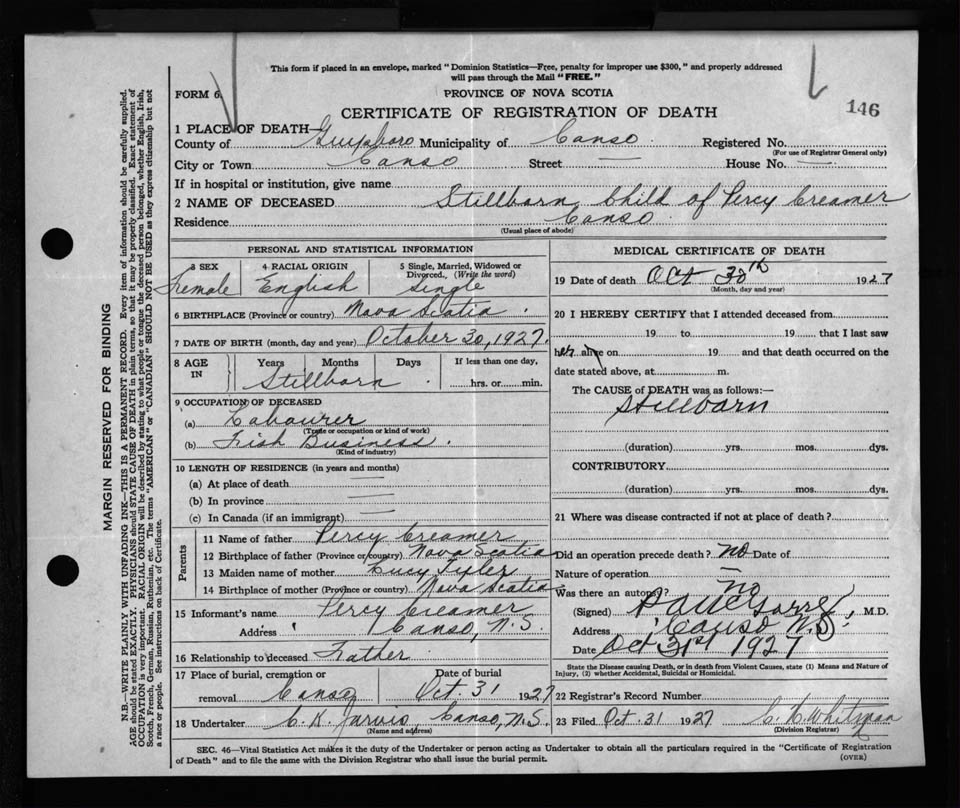 This form if placed in an envelope, marked "Dominion Statistics—Free, penalty for improper use $300," and properly addressed
will pass through the Mail "FREE."
FORM 6
PROVINCE OF NOVA SCOTIA
146
CERTIFICATE OF REGISTRATION OF DEATH
1 PLACE OF DEATH
County of Guysboro Municipality of Canso Registered No.
(For use of Registrar General only)
City or Town Canso Street — House No. —
If in hospital or institution, give name
2 NAME OF DECEASED Stillborn Child of Percy Creamer
Residence Canso
(Usual place of abode)
PERSONAL AND STATISTICAL INFORMATION
3 SEX 4 RACIAL ORIGIN 5 Single, Married, Widowed or
Divorced. (Write the word)
Female English Single
6 BIRTHPLACE (Province or country) Nova Scotia
7 DATE OF BIRTH (month, day and year) October 30, 1927.
8 AGE IN Years Months Days If less than one day,
Stillborn hrs. or min.
9 OCCUPATION OF DECEASED
(a) Labourer
(Trade or occupation or kind of work)
(b) Fish Business.
(Kind of industry)
10 LENGTH OF RESIDENCE (in years and months)
(a) At place of death —
(b) In province —
(c) In Canada (if an immigrant) —
Parents
11 Name of father Percy Creamer
12 Birthplace of father (Province or country) Nova Scotia
13 Maiden name of mother Lucy
14 Birthplace of mother (Province or country) Nova Scotia
15 Informant's name Percy Creamer
Address Canso, N.S.
16 Relationship to deceased Father
17 Place of burial, cremation or Date of burial
removal Canso Oct 31 1927
18 Undertaker C. K. Jarvis, Canso, N.S.
(Name and address)
MEDICAL CERTIFICATE OF DEATH
19 Date of death Oct 30th 1927
(Month, day and year)
20 I HEREBY CERTIFY that I attended deceased from
19 to 19 that I last saw
her alive on 19 and that death occurred on the
date stated above, at m.
The CAUSE of DEATH was as follows:—
Stillborn
(duration) yrs. mos. dys.
CONTRIBUTORY
(duration) yrs. mos. dys.
21 Where was disease contracted if not at place of death?
Did an operation precede death? no Date of
Nature of operation —
Was there an autopsy? no
(Signed) M.D.
Address Canso N.S.
Date Oct 31st 1927
State the Disease causing Death, or in death from Violent Causes, state (1) Means and Nature of
Injury, (2) whether Accidental, Suicidal or Homicidal.
22 Registrar's Record Number
23 Filed Oct. 31 1927 C. H. Whitman
(Division Registrar)
SEC. 46—Vital Statistics Act makes it the duty of the Undertaker or person acting as Undertaker to obtain all the particulars required in the "Certificate of Registration
of Death" and to file the same with the Division Registrar who shall issue the burial permit.
(OVER)
MARGIN RESERVED FOR BINDING
N.B.—WRITE PLAINLY WITH UNFADING INK—THIS IS A PERMANENT RECORD. Every item of information should be carefully supplied.
AGE should be stated EXACTLY. PHYSICIANS should STATE CAUSE OF DEATH in plain terms, so that it may be properly classified. Exact statement of
OCCUPATION is very important. RACIAL ORIGIN will be described by stating to what people or tongue the deceased person belonged, whether English, Irish,
Scotch, French, German, Russian, Ruthenian, etc. The terms "AMERICAN" or "CANADIAN" SHOULD NOT BE USED as they express citizenship but not
a race or people. See instructions on back of Certificate.